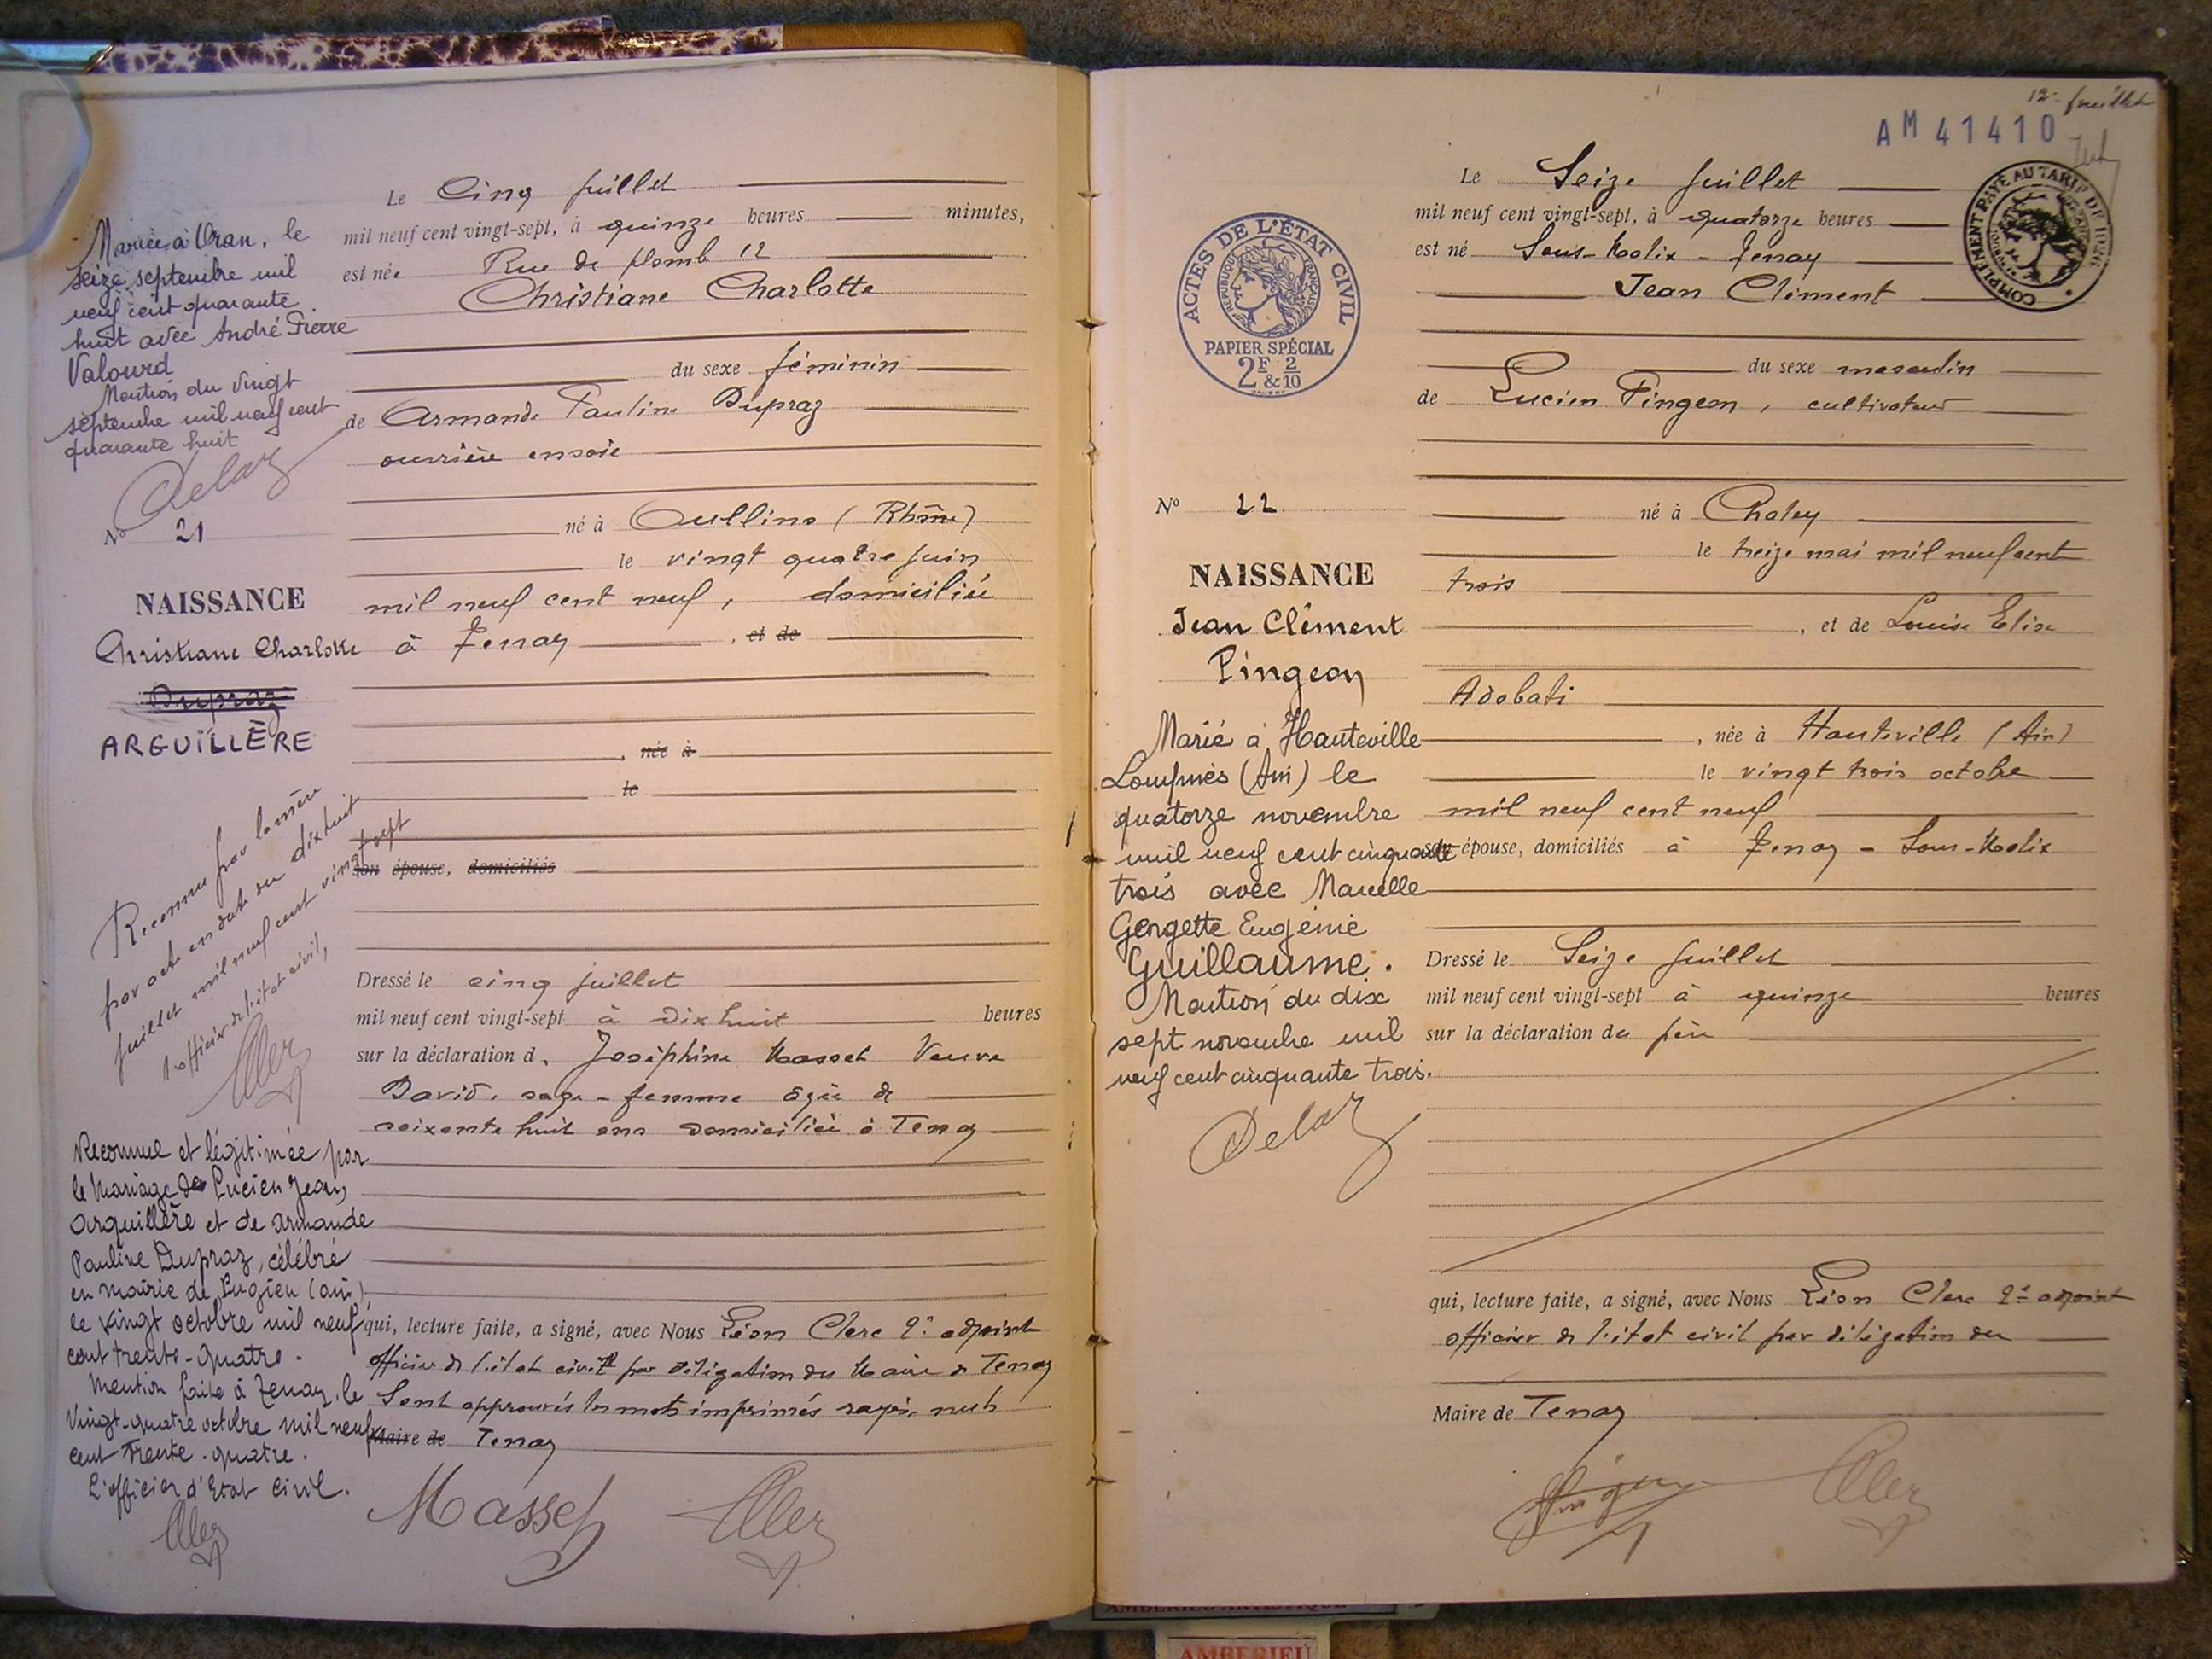 Le Cinq Juillet
mil neuf cent vingt-sept, à quinze heures minutes,
est née Rue de plomb 12
Christiane Charlotte
du sexe féminin
de Armande Pauline Dupraz
ouvrière en soie
né à Oullins (Rhône)
le vingt quatre juin
mil neuf cent neuf, domiciliée
à Tenay, et de
, née à
le
son épouse, domiciliés
Dressé le cinq juillet
mil neuf cent vingt-sept à dix huit heures
sur la déclaration de Joséphine Masset Veuve
David, sage-femme âgée de
soixante huit ans domiciliée à Tenay
qui, lecture faite, a signé, avec Nous Léon Clerc 2e adjoint
officier de l'état civil par délégation du Maire de Tenay
Sont approuvés les mots imprimés rayés nuls
Maire de Tenay
Masset
Mariée à Oran, le
seize septembre mil
neuf cent quarante
huit avec André Pierre
Valourd
Mention du vingt
septembre mil neuf cent
quarante huit
Delaz
No 21
NAISSANCE
Christiane Charlotte
Dupraz
ARGUILLÈRE
Reconnue par la mère
par acte en date du dix huit
juillet mil neuf cent vingt sept
l'officier de l'état civil,
Reconnue et légitimée par
le mariage de Lucien Jean
Arguillère et de Armande
Pauline Dupraz, célébré
en mairie de Pugieu (ain)
le vingt octobre mil neuf
cent trente-quatre.
Mention faite à Tenay le
Vingt-quatre octobre mil neuf
cent trente-quatre.
L'officier d'Etat Civil.
12e feuillet
AM 41410
COMPLÉMENT PAYÉ AU TARIF DE 1926
ACTES DE L'ÉTAT CIVIL
RÉPUBLIQUE FRANÇAISE
PAPIER SPÉCIAL
2F & 2/10
Le Seize Juillet
mil neuf cent vingt-sept, à quatorze heures
est né Sous-Molix - Tenay
Jean Clément
du sexe masculin
de Lucien Pingeon, cultivateur
né à Chaley
le treize mai mil neuf cent
trois
, et de Louise Elise
Adobati
, née à Hauteville (Ain)
le vingt trois octobre
mil neuf cent neuf
son épouse, domiciliés à Tenay - Sous-Molix
Dressé le Seize Juillet
mil neuf cent vingt-sept à quinze heures
sur la déclaration du père
qui, lecture faite, a signé, avec Nous Léon Clerc 2e adjoint
officier de l'état civil par délégation du
Maire de Tenay
No 22
NAISSANCE
Jean Clément
Pingeon
Marié à Hauteville
Lompnès (Ain) le
quatorze novembre
mil neuf cent cinquante
trois avec Marcelle
Georgette Eugénie
Guillaume.
Mention du dix
sept novembre mil
neuf cent cinquante trois.
Delaz
AMBERIEU